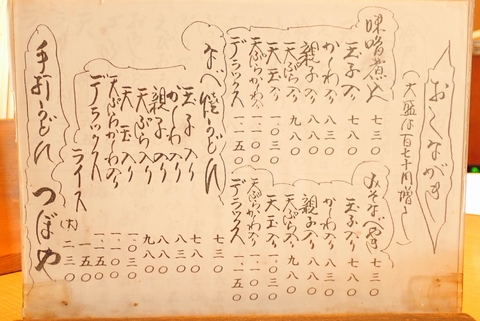 おしながき
(大盛は百七十円増し)
味噌煮込 七三〇
玉子入り 七八〇
かしわ入り 八三〇
親子入り 八八〇
天ぷら入り 九八〇
天玉入り 一、〇三〇
天ぷらかしわ入り 一、一〇〇
デラックス 一、一五〇
みそなべやき 七三〇
玉子入り 七八〇
かしわ入り 八三〇
親子入り 八八〇
天ぷら入り 九八〇
天玉入り 一、〇三〇
天ぷらかしわ入り 一、一〇〇
デラックス 一、一五〇
なべ焼うどん 七三〇
玉子入り 七八〇
かしわ入り 八三〇
親子入り 八八〇
天ぷら入り 九八〇
天玉入り 一、〇三〇
天ぷらかしわ入り 一、一〇〇
デラックス 一、一五〇
ライス (大) 二三〇
手打うどん つぼや